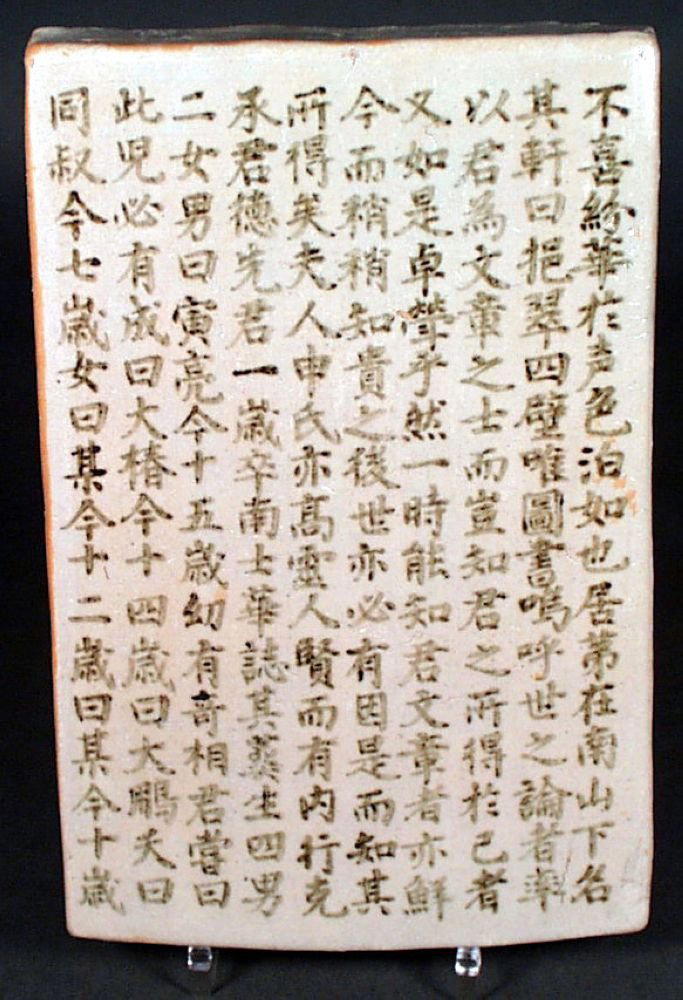 不喜紛華於声色泊如也居第在南山下名
其軒曰挹翠四壁唯圖書嗚呼世之論者率
以君為文章之士而豈知君之所得於己者
又如是卓犖乎然一時能知君文章者亦鮮
今而稍稍知貴之後世亦必有因是而知其
所得矣夫人申氏亦高靈人賢而有内行克
承君德先君一歲卒南士華誌其葬生四男
二女男曰寅亮今十五歲幼有奇相君嘗曰
此児必有成曰大椿今十四歲曰大鵬夭曰
同叔今七歲女曰某今十二歲曰某今十歲